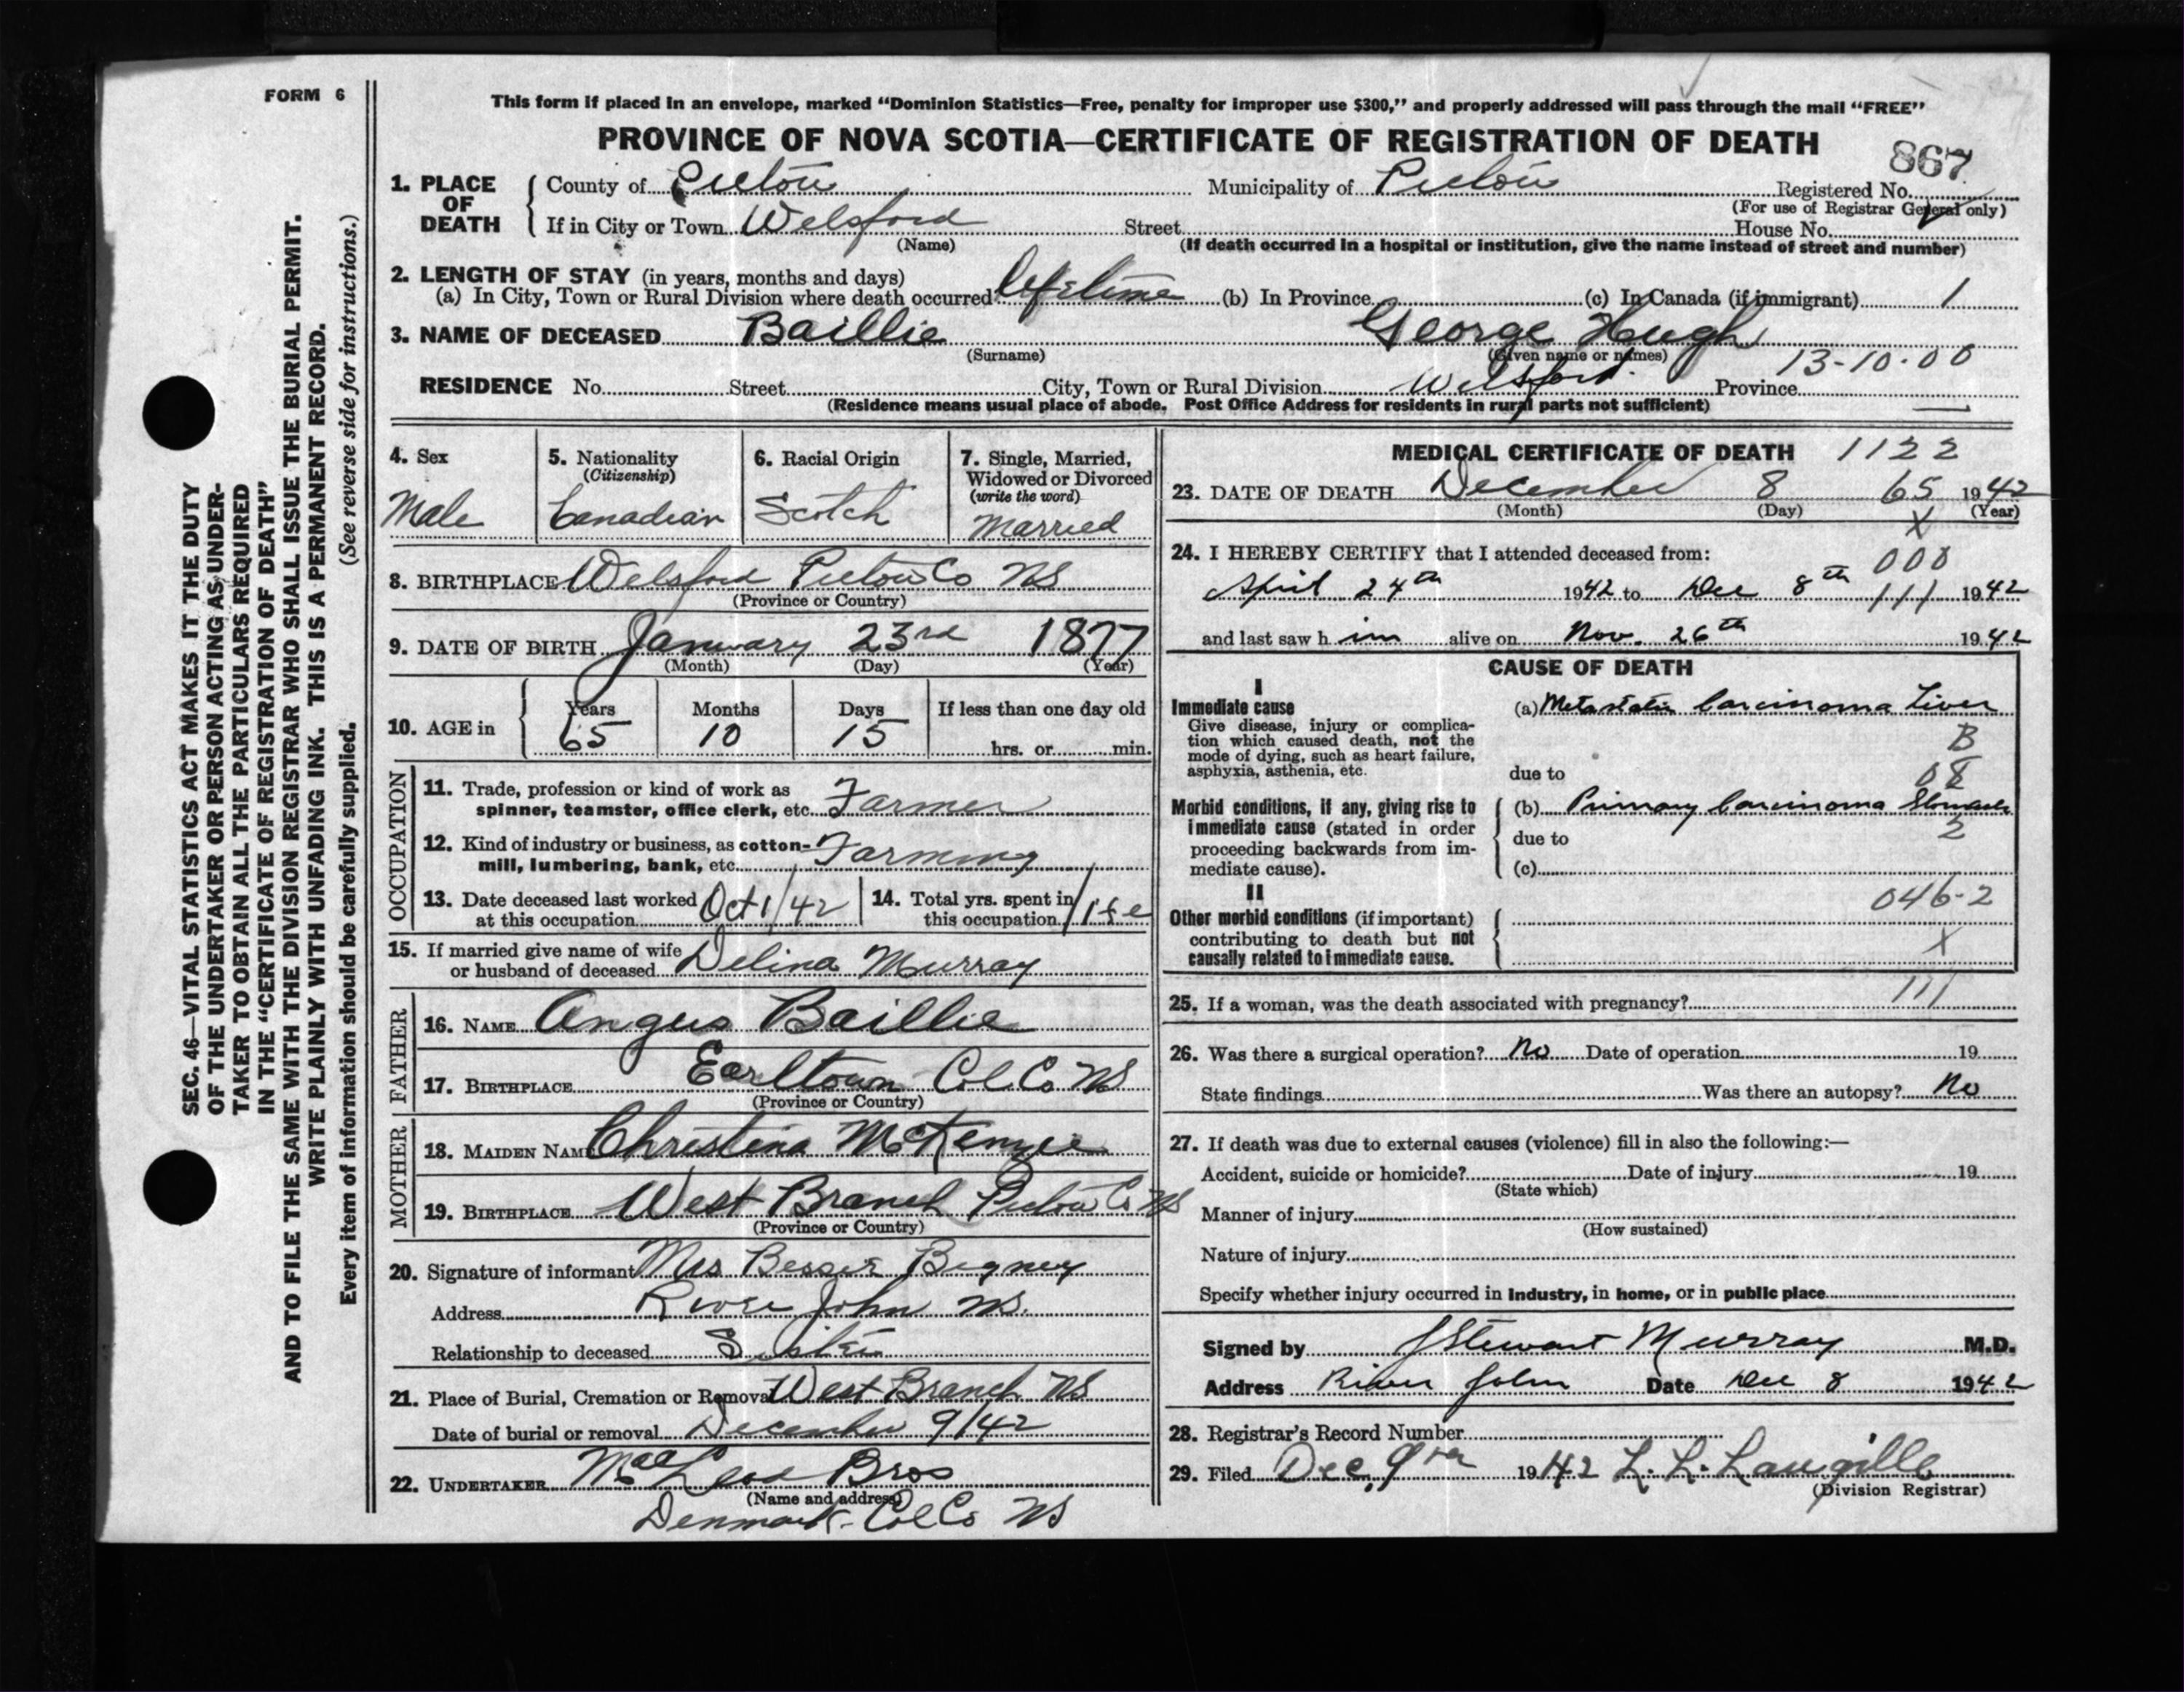 FORM 6
This form if placed in an envelope, marked “Dominion Statistics—Free, penalty for improper use $300,” and properly addressed will pass through the mail “FREE”
PROVINCE OF NOVA SCOTIA—CERTIFICATE OF REGISTRATION OF DEATH
867
1. PLACE OF DEATH { County of Pictou Municipality of Pictou Registered No.
(For use of Registrar General only)
If in City or Town Welsford Street House No.
(Name) (If death occurred in a hospital or institution, give the name instead of street and number)
2. LENGTH OF STAY (in years, months and days)
(a) In City, Town or Rural Division where death occurred lifetime (b) In Province (c) In Canada (if immigrant) 1
3. NAME OF DECEASED Baillie George Hugh
(Surname) (Given name or names) 13-10-00
RESIDENCE No. Street City, Town or Rural Division Welsford. Province
(Residence means usual place of abode. Post Office Address for residents in rural parts not sufficient)
4. Sex
Male
5. Nationality
(Citizenship)
Canadian
6. Racial Origin
Scotch
7. Single, Married,
Widowed or Divorced
(write the word)
Married
8. BIRTHPLACE Welsford Pictou Co NS
(Province or Country)
9. DATE OF BIRTH January 23rd 1877
(Month) (Day) (Year)
10. AGE in { Years Months Days If less than one day old
65 10 15 hrs. or min.
OCCUPATION
11. Trade, profession or kind of work as
spinner, teamster, office clerk, etc. Farmer
12. Kind of industry or business, as cotton-
mill, lumbering, bank, etc. Farming
13. Date deceased last worked
at this occupation Oct 1/42
14. Total yrs. spent in
this occupation life
15. If married give name of wife
or husband of deceased Delina Murray
FATHER
16. NAME Angus Baillie
17. BIRTHPLACE Earltown Col. Co NS
(Province or Country)
MOTHER
18. MAIDEN NAME Christina McKenzie
19. BIRTHPLACE West Branch Pictou Co NS
(Province or Country)
20. Signature of informant Mrs Besser Bigney
Address River John NS.
Relationship to deceased Sister
21. Place of Burial, Cremation or Removal West Branch NS
Date of burial or removal December 9/42
22. UNDERTAKER MacLeod Bros
(Name and address)
Denmark Col Co NS
MEDICAL CERTIFICATE OF DEATH 1122
23. DATE OF DEATH December 8 65 1942
(Month) (Day) X (Year)
24. I HEREBY CERTIFY that I attended deceased from:
000
April 24th 1942 to Dec 8th 111 1942
and last saw h im alive on Nov. 26th 1942
CAUSE OF DEATH
I
Immediate cause
Give disease, injury or complica-
tion which caused death, not the
mode of dying, such as heart failure,
asphyxia, asthenia, etc.
(a) Metastatic Carcinoma Liver
B
due to
Morbid conditions, if any, giving rise to
immediate cause (stated in order
proceeding backwards from im-
mediate cause).
(b) Primary Carcinoma Stomach
due to 2
(c)
II
046-2
Other morbid conditions (if important)
contributing to death but not
causally related to immediate cause.
X
25. If a woman, was the death associated with pregnancy? 111
26. Was there a surgical operation? No Date of operation 19
State findings Was there an autopsy? No
27. If death was due to external causes (violence) fill in also the following:—
Accident, suicide or homicide? Date of injury 19
(State which)
Manner of injury
(How sustained)
Nature of injury
Specify whether injury occurred in industry, in home, or in public place
Signed by J Stewart Murray M.D.
Address River John Date Dec 8 1942
28. Registrar's Record Number
29. Filed Dec. 9th 1942 L. L. Langille
(Division Registrar)
SEC. 46—VITAL STATISTICS ACT MAKES IT THE DUTY
OF THE UNDERTAKER OR PERSON ACTING AS UNDER-
TAKER TO OBTAIN ALL THE PARTICULARS REQUIRED
IN THE “CERTIFICATE OF REGISTRATION OF DEATH”
AND TO FILE THE SAME WITH THE DIVISION REGISTRAR WHO SHALL ISSUE THE BURIAL PERMIT.
WRITE PLAINLY WITH UNFADING INK. THIS IS A PERMANENT RECORD.
Every item of information should be carefully supplied. (See reverse side for instructions.)